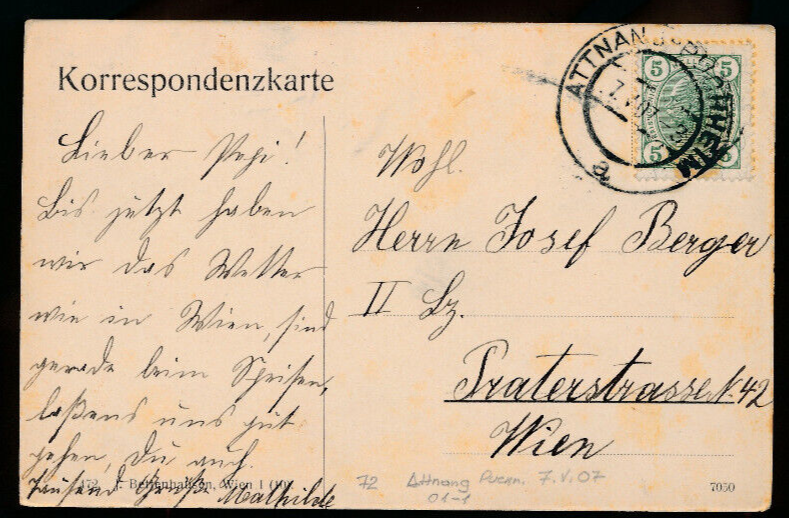 Korrespondenzkarte
ATTNANG-PUCHHEIM
7.V.07
a
5 5
5 5
Lieber Pepi!
Bis jetzt haben
wir das Wetter
wie in Wien, sind
gerade beim Speisen,
laßens uns gut
gehen, Du auch.
Tausend Grüße Mathilde
Wohl.
Herrn Josef Berger
II Bz.
Praterstrasse N. 42
Wien
472 J. Bettenhausen, Wien 1 (10).
72 Attnang Puchh. 7.V.07
01-1
7050